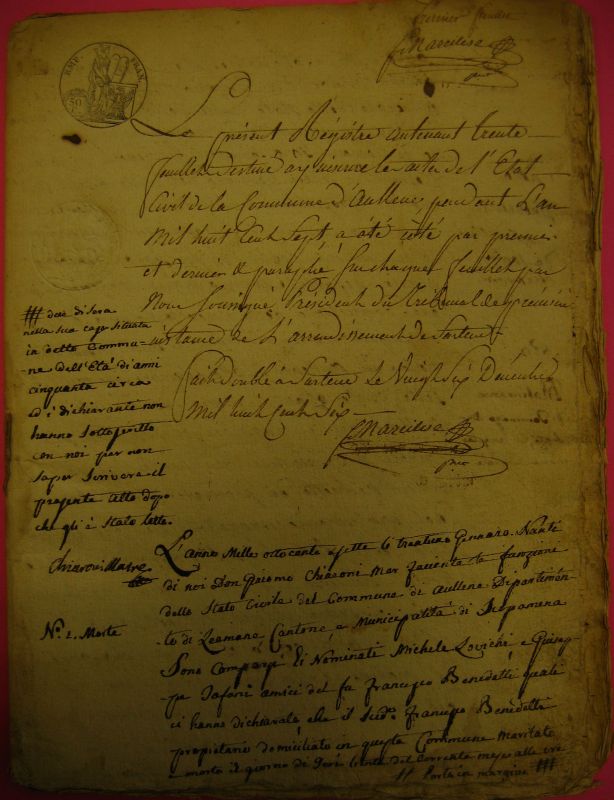 Premier feuillet
Marcilese
EMP. FRAN.
50
Le présent Régistre contenant trente
feuillets destiné a y inscrire les actes de l'Etat
Civil de la Commune d'Aullene pendant L'an
Mil huit Cent Sept, a été coté par premier
et dernier & paraphé sur chaque feuillet par
Nous Soussigné President du Tribunal de premiere
instance de L'arrondissement de Sartene
Fait Double à Sartene Le Vingt Six Decembre
Mil huit Cent Six
Marcilese
### dieci di sera
nella sua casa Situata
in detto Commu-
ne dell'Età di anni
cinquanta circa
ed i dichiaranti non
hanno Sottoscritto
con noi per non
saper Scrivere il
presente atto dopo
che gli è Stato letto.
Chiaroni Maire
L'anno Mille ottocento e sette li trentuno Gennaro. Nanti
di noi Don Giacomo Chiaroni Mer facente la funzione
dello Stato Civile del Commune di Aullene Dipartimen-
to di Liamone Cantone, e Municipalità di
Nº. 1. Morte
Sono Comparsi li Nominati Michele Lovichi e Giusep-
pe amici del fù Francesco Benedetti quali
ci hanno dichiarato che il Sudº. Francesco Benedetti
propietario domiciliato in questa Commune Maritato
e morto il giorno di Jeri trenta del Corrente mese alle ore
// Porta in margine ###